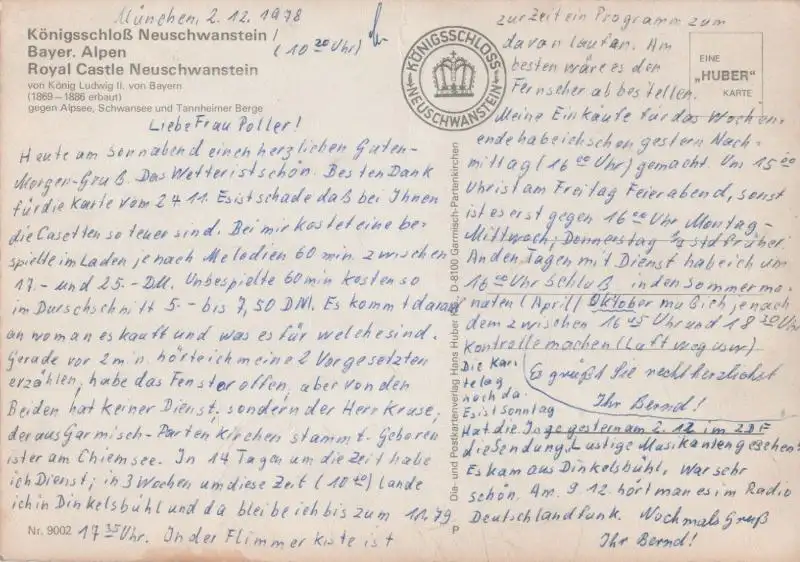 München, 2.12.1978
(10 20 Uhr)
Königsschloß Neuschwanstein /
Bayer. Alpen
Royal Castle Neuschwanstein
von König Ludwig II. von Bayern
(1869–1886 erbaut)
gegen Alpsee, Schwansee und Tannheimer Berge
Liebe Frau Poller!
Heute am Sonnabend einen herzlichen Guten-
Morgen-Gruß. Das Wetter ist schön. Besten Dank
für die Karte vom 24 11. Es ist schade daß bei Ihnen
die Casetten so teuer sind. Bei mir kostet eine be-
spielte im Laden je nach Melodien 60 min. zwischen
17.- und 25.-DM. Unbespielte 60 min kosten so
im Durschschnitt 5.- bis 7,50 DM. Es kommt darauf
an wo man es kauft und was es für welche sind.
Gerade vor 2 min. hörte ich meine 2 Vorgesetzten
erzählen, habe das Fenster offen, aber von den
Beiden hat keiner Dienst, sondern der Herr Kruse,
der aus Garmisch-Partenkirchen stammt. Geboren
ist er am Chiemsee. In 14 Tagen um die Zeit habe
ich Dienst, in 3 Wochen um diese Zeit (10 40) lande
ich in Dinkelsbühl und da bleibe ich bis zum 1.1.79
17 35 Uhr. In der Flimmerkiste ist
Nr. 9002
KÖNIGSSCHLOSS
NEUSCHWANSTEIN
Dia- und Postkartenverlag Hans Huber D-8100 Garmisch-Partenkirchen
P
EINE
„HUBER"
KARTE
zur Zeit ein Programm zum
davon laufen. Am
besten wäre es den
Fernseher abbestellen.
Meine Einkäufe für das Wochen-
ende habe ich schon gestern Nach-
mittag (16 00 Uhr) gemacht. Um 15 00
Uhr ist am Freitag Feierabend, sonst
ist es erst gegen 16 00 Uhr Montag-
Mittwoch; Donnerstag 1/2 std früher.
An den Tagen mit Dienst habe ich um
16 00 Uhr Schluß, in den Sommermo-
naten (April/Oktober muß ich je nach
dem zwischen 16 45 Uhr und 18 30 Uhr
Kontrolle machen (Luftweg usw)
Es grüßt Sie recht herzlichst
Ihr Bernd!
Die Kar-
te lag
noch da.
Es ist Sonntag
Hat die gestern am 2.12 im ZDF
die Sendung „Lustige Musikanten gesehen?
Es kam aus Dinkelsbühl, war sehr
schön. Am 9 12. hört man es im Radio
Deutschlandfunk. Nochmals Gruß
Ihr Bernd!